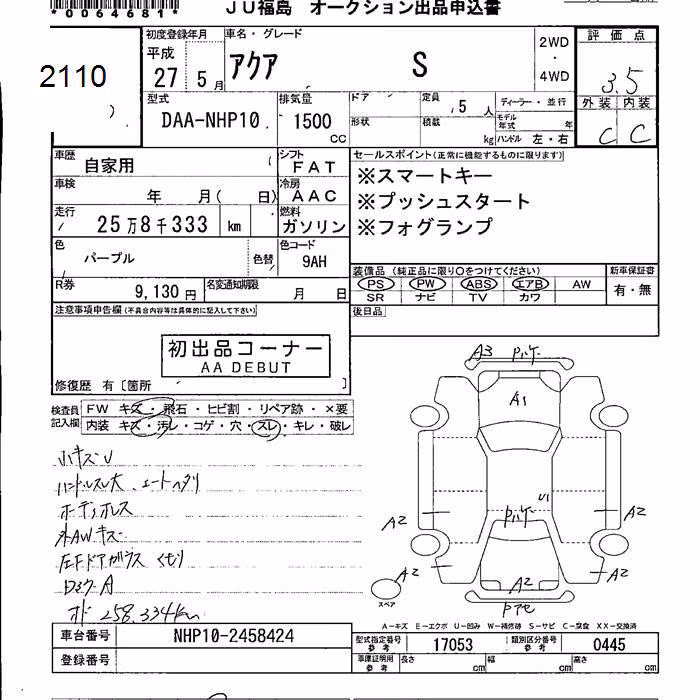 *0064681*
JU福島 オークション出品申込書
2110
初度登録年月
平成
27 5月
車名・グレード
アクア S
2WD
・
4WD
評価点
3.5
外装 内装
C C
型式
DAA-NHP10
排気量
1500
cc
ドア
形状
定員
5人
積載
kg
ディーラー・並行
モデル年式 年
ハンドル 左・右
車歴
自家用
シフト
FAT
車検
年 月( 日)
冷房
AAC
走行
25万8千333 km
燃料
ガソリン
色
パープル
色替
色コード
9AH
R券
9,130円
名変通知期限
月 日
セールスポイント(正常に機能するものに限ります)
※スマートキー
※プッシュスタート
※フォグランプ
装備品(純正品に限り○をつけてください)
PS PW ABS エアB AW
SR ナビ TV カワ
新車保証書
有・無
後日品
注意事項申告欄(不具合内容等は具体的に記入して下さい)
初出品コーナー
AA DEBUT
修復歴 有〔箇所 〕
検査員
記入欄
FW キズ・飛石・ヒビ割・リペア跡・×要
内装 キズ・汚レ・コゲ・穴・スレ・キレ・破レ
小キズU
ハンドルスレ大、シートヘタリ
ボーディホレス
外AWキズ
左Fドアガラスくもり
Dミラー A
オド 258.334km
A3
A1
U1
A2
A2
A2
A2
A2
スペア
A-キズ E-エクボ U-凹み W-補修跡 S-サビ C-腐食 XX-交換済
車台番号
NHP10-2458424
登録番号
型式指定番号
参考
17053
類別区分番号
参考
0445
車庫証明用
参考
長さ cm
幅 cm
高さ cm